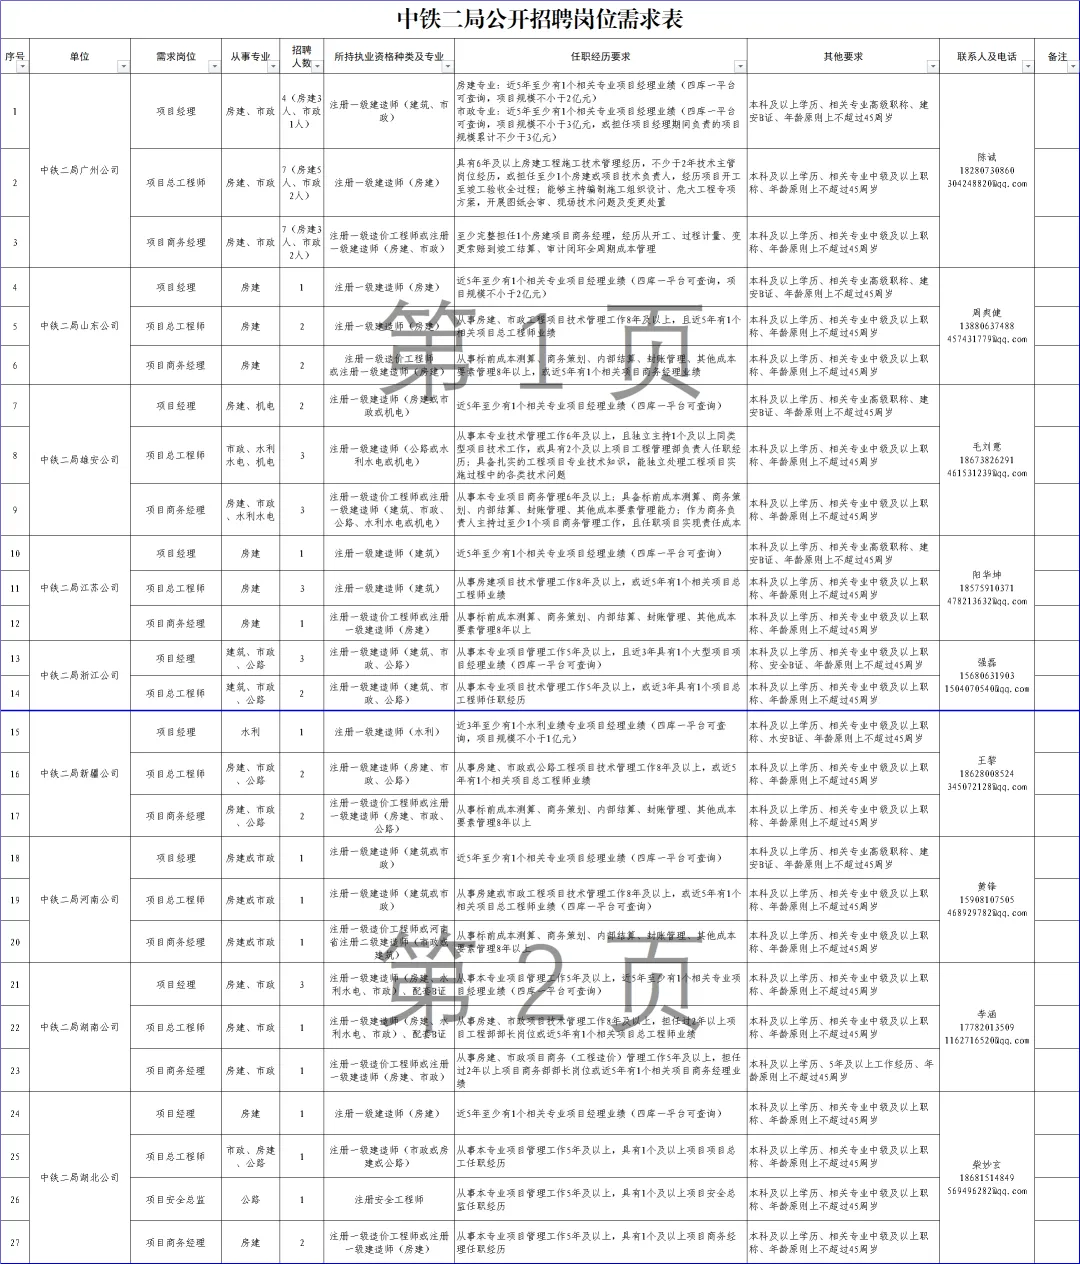 中铁二局公开招聘岗位需求表
序号 单位 需求岗位 从事专业 招聘人数 所持执业资格种类及专业 任职经历要求 其他要求 联系人及电话 备注
中铁二局广州公司
陈诚
18280730860
304248820@qq.com
1 项目经理 房建、市政 4（房建3人、市政1人） 注册一级建造师（建筑、市政）
房建专业：近5年至少有1个相关专业项目经理业绩（四库一平台
可查询，项目规模不小于2亿元）
市政专业：近5年至少有1个相关专业项目经理业绩（四库一平台
可查询，项目规模不小于3亿元，或担任项目经理期间负责的项目
规模累计不少于3亿元）
本科及以上学历、相关专业高级职称、建
安B证、年龄原则上不超过45周岁
2 项目总工程师 房建、市政 7（房建5人、市政2人） 注册一级建造师（房建）
具有6年及以上房建工程施工技术管理经历，不少于2年技术主管
岗位经历，或担任至少1个房建或项目技术负责人，经历项目开工
至竣工验收全过程；能够主持编制施工组织设计、危大工程专项
方案，开展图纸会审、现场技术问题及变更处置
本科及以上学历、相关专业中级及以上职
称、年龄原则上不超过45周岁
3 项目商务经理 房建、市政 7（房建3人、市政2人） 注册一级造价工程师或注册一级建造师（房建、市政）
至少完整担任1个房建项目商务经理，经历从开工、过程计量、变
更索赔到竣工结算、审计闭环全周期成本管理
本科及以上学历、相关专业中级及以上职
称、年龄原则上不超过45周岁
中铁二局山东公司
周爽健
13880637488
457431779@qq.com
4 项目经理 房建 1 注册一级建造师（房建）
近5年至少有1个相关专业项目经理业绩（四库一平台可查询，项
目规模不小于2亿元）
本科及以上学历、相关专业高级职称、建
安B证、年龄原则上不超过45周岁
5 项目总工程师 房建 2 注册一级建造师（房建）
从事房建、市政工程项目技术管理工作8年及以上，且近5年有1个
相关项目总工程师业绩
本科及以上学历、相关专业中级及以上职
称、年龄原则上不超过45周岁
6 项目商务经理 房建 2 注册一级造价工程师或注册一级建造师（房建）
从事标前成本测算、商务策划、内部结算、封账管理、其他成本
要素管理8年以上，或近5年有1个相关项目商务经理业绩
本科及以上学历、相关专业中级及以上职
称、年龄原则上不超过45周岁
第 1 页
中铁二局雄安公司
毛刘意
18673826291
461531239@qq.com
7 项目经理 房建、机电 2 注册一级建造师（房建或市政或机电）
近5年至少有1个相关专业项目经理业绩（四库一平台可查询）
本科及以上学历、相关专业高级职称、建
安B证、年龄原则上不超过45周岁
8 项目总工程师 市政、水利水电、机电 3 注册一级建造师（公路或水利水电或机电）
从事本专业技术管理工作6年及以上，且独立主持1个及以上同类
型项目技术工作，或具有2个及以上项目工程管理部负责人任职经
历；具备扎实的工程项目专业技术知识，能独立处理工程项目实
施过程中的各类技术问题
本科及以上学历、相关专业中级及以上职
称、年龄原则上不超过45周岁
9 项目商务经理 房建、市政、水利水电 3 注册一级造价工程师或注册一级建造师（建筑、市政、公路、水利水电或机电）
从事本专业项目商务管理6年及以上；具备标前成本测算、商务策
划、内部结算、封账管理、其他成本要素管理能力；作为商务负
责人主持过至少1个项目商务管理工作，且任职项目实现责任成本
本科及以上学历、相关专业中级及以上职
称、年龄原则上不超过45周岁
中铁二局江苏公司
阳华坤
18575910371
478213632@qq.com
10 项目经理 房建 1 注册一级建造师（建筑）
近5年至少有1个相关专业项目经理业绩（四库一平台可查询）
本科及以上学历、相关专业高级职称、建
安B证、年龄原则上不超过45周岁
11 项目总工程师 房建 3 注册一级建造师（建筑）
从事房建项目技术管理工作8年及以上，或近5年有1个相关项目总
工程师业绩
本科及以上学历、相关专业中级及以上职
称、年龄原则上不超过45周岁
12 项目商务经理 房建 1 注册一级造价工程师或注册一级建造师（房建）
从事标前成本测算、商务策划、内部结算、封账管理、其他成本
要素管理8年以上
本科及以上学历、相关专业中级及以上职
称、年龄原则上不超过45周岁
中铁二局浙江公司
强磊
15680631903
1504070540@qq.com
13 项目经理 建筑、市政、公路 3 注册一级建造师（建筑、市政、公路）
从事本专业项目管理工作5年及以上，且近3年具有1个大型项目项
目经理业绩（四库一平台可查询）
本科及以上学历、相关专业中级及以上职
称、安全B证、年龄原则上不超过45周岁
14 项目总工程师 建筑、市政、公路 2 注册一级建造师（建筑、市政、公路）
从事本专业项目技术管理工作5年及以上，或近3年具有1个项目总
工程师任职经历
本科及以上学历、相关专业中级及以上职
称、年龄原则上不超过45周岁
中铁二局新疆公司
王黎
18628008524
345072128@qq.com
15 项目经理 水利 1 注册一级建造师（水利）
近3年至少有1个水利业绩专业项目经理业绩（四库一平台可查
询，项目规模不小于1亿元）
本科及以上学历、相关专业中级及以上职
称、水安B证、年龄原则上不超过45周岁
16 项目总工程师 房建、市政、公路 2 注册一级建造师（房建、市政、公路）
从事房建、市政或公路工程项目技术管理工作8年及以上，或近5
年有1个相关项目总工程师业绩
本科及以上学历、相关专业中级及以上职
称、年龄原则上不超过45周岁
17 项目商务经理 房建、市政、公路 2 注册一级造价工程师或注册一级建造师（房建、市政、公路）
从事标前成本测算、商务策划、内部结算、封账管理、其他成本
要素管理8年以上
本科及以上学历、相关专业中级及以上职
称、年龄原则上不超过45周岁
中铁二局河南公司
黄锋
15908107505
468929782@qq.com
18 项目经理 房建或市政 1 注册一级建造师（建筑或市政）
近5年至少有1个相关专业项目经理业绩（四库一平台可查询）
本科及以上学历、相关专业高级职称、建
安B证、年龄原则上不超过45周岁
19 项目总工程师 房建或市政 1 注册一级建造师（建筑或市政）
从事房建或市政工程项目技术管理工作8年及以上，或近5年有1个
相关项目总工程师业绩（四库一平台可查询）
本科及以上学历、相关专业中级及以上职
称、年龄原则上不超过45周岁
20 项目商务经理 房建或市政 1 注册一级造价工程师或河南省注册二级建造师（市政或建筑）
从事标前成本测算、商务策划、内部结算、封账管理、其他成本
要素管理8年以上
本科及以上学历、相关专业中级及以上职
称、年龄原则上不超过45周岁
第 2 页
中铁二局湖南公司
李涵
17782013509
1162716520@qq.com
21 项目经理 房建、市政 3 注册一级建造师（房建、水利水电、市政）、配套B证
从事本专业项目管理工作5年及以上，近5年至少有1个相关专业项
目经理业绩（四库一平台可查询）
本科及以上学历、相关专业中级及以上职
称、年龄原则上不超过45周岁
22 项目总工程师 房建、市政 1 注册一级建造师（房建、水利水电、市政）、配套B证
从事房建、市政项目技术管理工作8年及以上，担任过2年以上项
目工程部部长岗位或近5年有1个相关项目总工程师业绩
本科及以上学历、相关专业中级及以上职
称、年龄原则上不超过45周岁
23 项目商务经理 房建、市政 1 注册一级造价工程师或注册一级建造师（房建、市政）
从事房建、市政项目商务（工程造价）管理工作5年及以上，担任
过2年以上项目商务部部长岗位或近5年有1个相关项目商务经理业
绩
本科及以上学历、5年及以上工作经历、年
龄原则上不超过45周岁
中铁二局湖北公司
柴妙玄
18681514849
569496282@qq.com
24 项目经理 房建 1 注册一级建造师（房建）
近5年至少有1个相关专业项目经理业绩（四库一平台可查询）
本科及以上学历、相关专业中级及以上职
称、年龄原则上不超过45周岁
25 项目总工程师 市政、房建、公路 1 注册一级建造师（市政或房建或公路）
从事本专业项目管理工作5年及以上，具有1个及以上项目项目总
工任职经历
本科及以上学历、相关专业中级及以上职
称、年龄原则上不超过45周岁
26 项目安全总监 公路 1 注册安全工程师
从事本专业项目管理工作5年及以上，具有1个及以上项目安全总
监任职经历
本科及以上学历、相关专业中级及以上职
称、年龄原则上不超过45周岁
27 项目商务经理 房建 2 注册一级造价工程师或注册一级建造师（房建）
从事本专业项目管理工作5年及以上，具有1个及以上项目商务经
理任职经历
本科及以上学历、相关专业中级及以上职
称、年龄原则上不超过45周岁